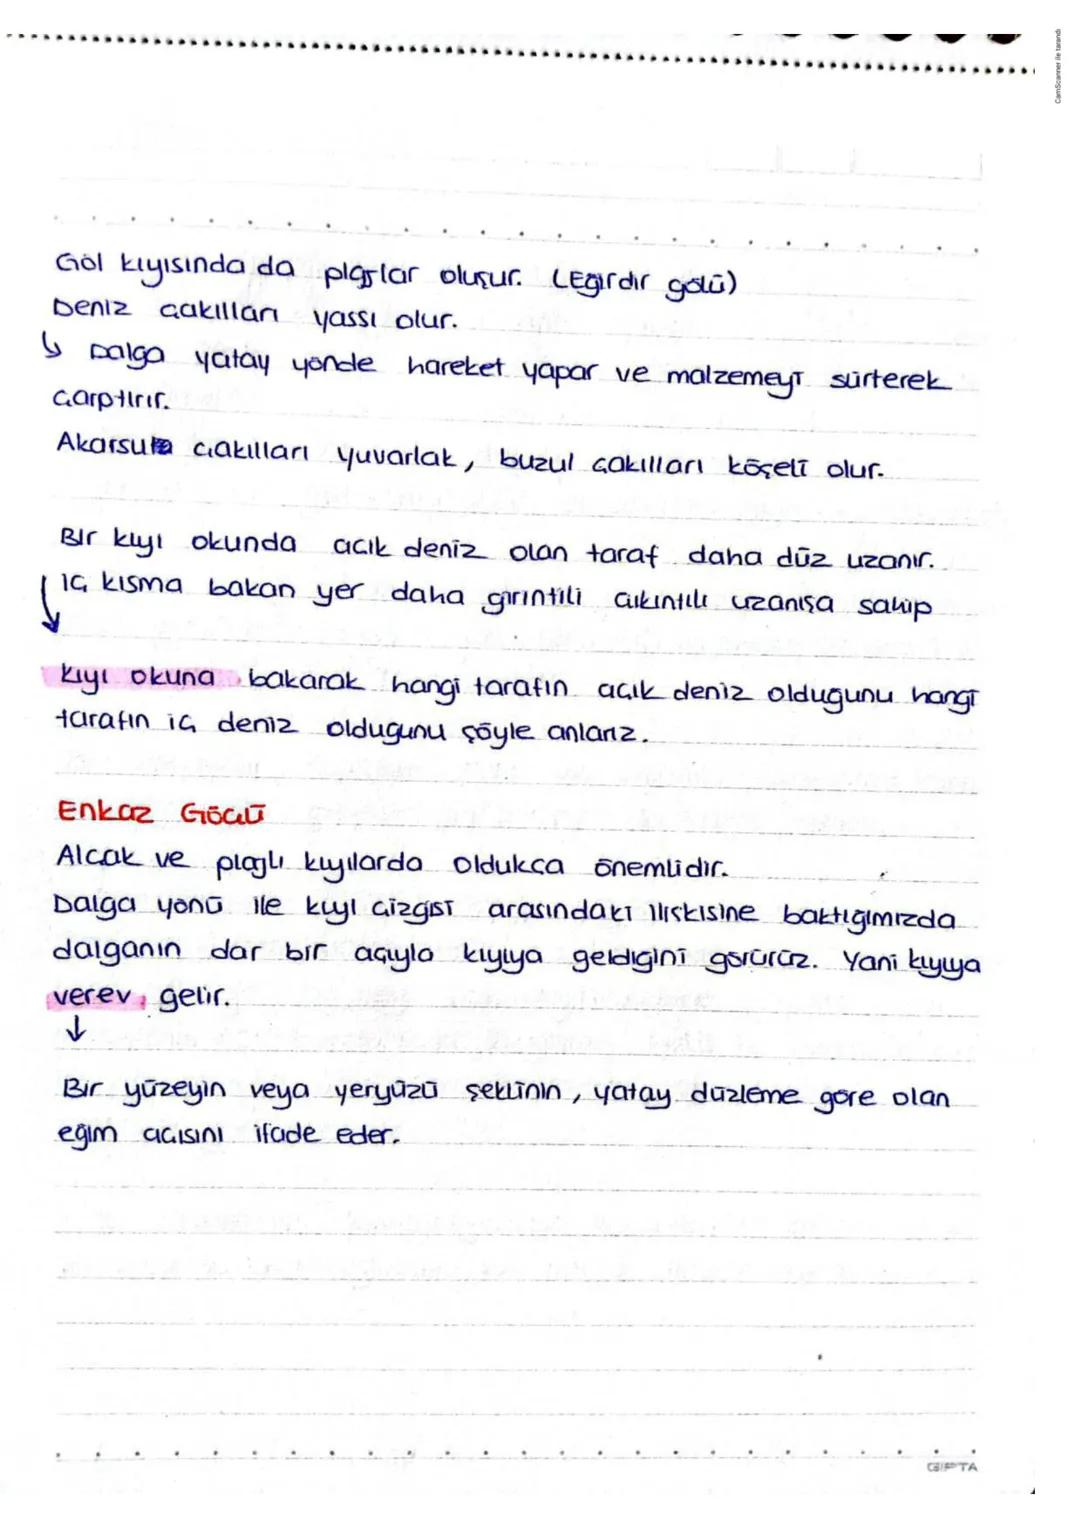 CamScanner ile tarandı
Göl kıyısında da plajlar oluşur. (Eğirdir gölü)
Deniz çakılları yassı olur.
↳ Dalga yatay yönde hareket yapar ve malzemeyi sürterek
çarptırır.
Akarsu çakılları yuvarlak, buzul çakılları köşeli olur.
Bir kıyı okunda açık deniz olan taraf daha düz uzanır.
İç kısma bakan yer daha girintili çıkıntılı uzanışa sahip
↓
Kıyı okuna bakarak hangi tarafın açık deniz olduğunu hangi
tarafın iç deniz olduğunu şöyle anlarız.
Enkaz Göçü
Alçak ve plajlı kıyılarda oldukça önemlidir.
Dalga yönü ile kıyı çizgisi arasındaki ilişkisine baktığımızda
dalganın dar bir açıyla kıyıya geldiğini görürüz. Yani kıyıya
verev gelir.
↓
Bir yüzeyin veya yeryüzü şeklinin, yatay düzleme göre olan
eğim açısını ifade eder.
GIPTA